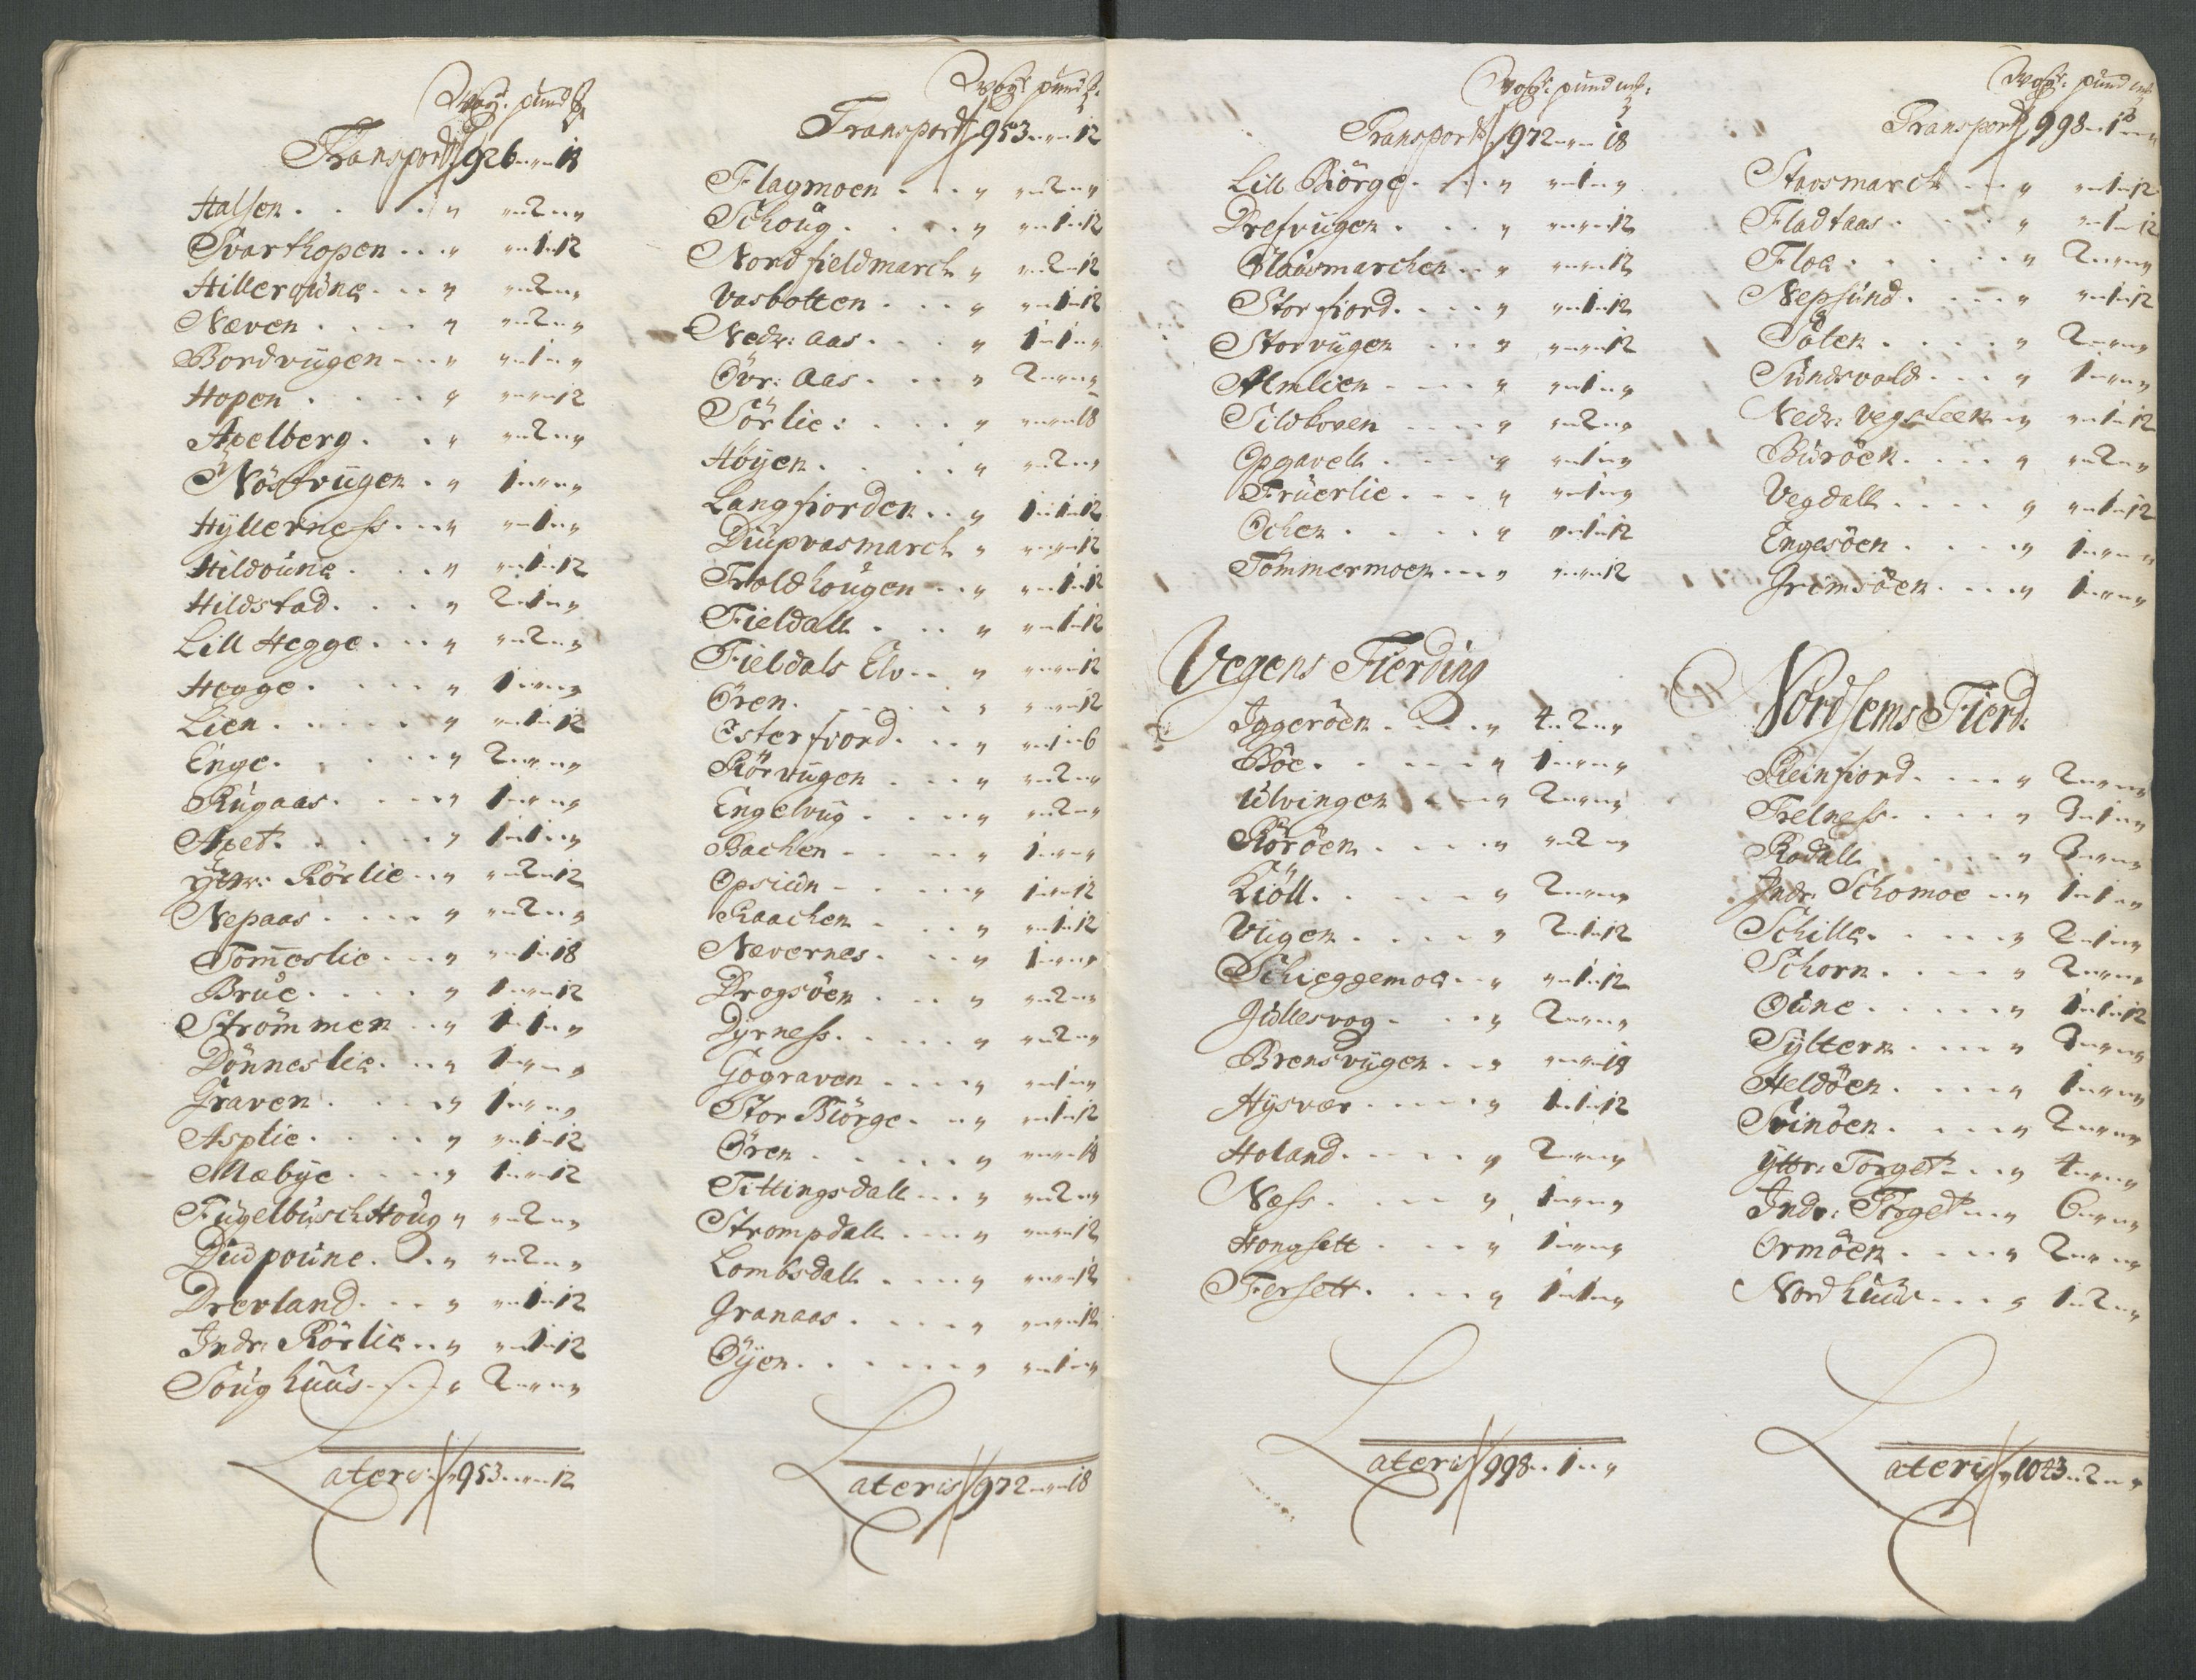 Wog: pund
Transport 926 „ 18
Halsen . . . „ „ 2 „
Svarthopen . . . „ „ 1 12
Hilleroüne . . . „ „ 2 „
Næven . . . „ „ 2 „
Bordvügen . . . „ „ 1 „
Hopen . . . „ „ „ 12
Apelberg . . . „ „ 2 „
Nöstvügen . . „ 1 „ „
Hÿllerness . . . „ „ 1 „
Hildoüne . . . „ „ 1 12
Hildstad . . . „ 2 1 „
Lill Hegge . . . „ „ 2 „
Hegge . . . „ 1 „ „
Lien . . . „ „ 1 12
Enge . . . „ 2 „ „
Rügaas . . . „ 1 „ „
Apet . . . „ 1 1 „
ÿttr: Rörlie . . „ „ 2 12
Nepaas . . . „ „ 2 „
Tom̄eslie . . . „ „ 1 18
Brüe . . . „ 1 „ 12
Strömmen . . „ 1 1 „
Dönneslie . . . „ 1 „ „
Graven . . . „ 1 „ „
Asplie . . . „ „ 1 12
Mæbÿe . . . „ 1 „ 12
Fügelbüsch Houg „ „ 2 „
Diüpoüne . . . „ „ 2 „
Drevland . . . „ „ 1 12
Indr: Rörlie . . „ „ 1 12
Soüg huüs . . . „ 2 „ „
Lateris „ 953 „ 12
Wog: pund
Transport 953 „ 12
Flagmoen . . . „ „ 2 „
Schoug . . . „ „ 1 12
Nordfieldmarch „ „ 2 12
Vasbotten . . . „ „ 1 12
Nedr: Aas . . . „ 1 1 „
Övr: Aas . . . „ 2 „ „
Sörlie: . . . „ „ „ 18
Höÿen . . . „ „ 2 „
Langfiorden . . „ 1 1 12
Diüpvasmarch „ „ „ 12
Troldhougen . . „ „ 1 12
Fieldall . . . „ „ 1 12
Fieldals Elv . . „ „ „ 12
Ören . . . „ „ „ 12
Esterfiord . . . „ „ 1 6
Rörvügen . . . „ „ 2 „
Engelvüg . . . „ „ 2 „
Bachen . . . „ 1 „ „
Opsiün . . . „ 1 „ 12
Raachen . . . „ „ 1 12
Nævernes . . . „ 1 „ „
Drogsöen . . . „ „ 2 „
Dÿrness . . . „ „ 2 „
Gograven . . . „ „ 1 „
Stor Biörge . . „ „ 1 12
Ören . . . „ „ „ 18
Tittingsdall . . „ „ 2 „
Strompdall . . . „ „ „ 12
Lombsdall . . . „ „ „ 12
Granaas . . . „ „ „ 12
Öÿen . . . „ „ 1 „
Lateris 972 „ 18
Wog: pund
Transport 972 „ 18
Lill Biörge . . . „ „ 1 „
Drefvügen . . . „ „ „ 12
Claüsmarchen . . „ „ „ 12
Storfiord . . . „ „ 1 12
Storvügen . . . „ „ „ 12
Almlien . . . „ „ 1 „
Sildhoven . . . „ „ 2 „
Opgavell . . . „ „ 1 „
Früerlie . . . „ „ 1 „
Ochen . . . „ „ 1 12
Tömmermoen . . „ „ „ 12
Vegens Fierding
Iggeröen . . . „ 4 2 „
Böe . . . „ 1 „ „
Ulvingen . . . „ 2 „ „
Röröen . . . „ „ 2 „
Kiöll . . . „ 2 „ „
Viigen . . . „ 2 1 12
Schieggemoe . . „ „ 1 12
Güllesvog . . . „ 2 „ „
Brensviigen . . „ „ „ 18
Hÿsvær . . . „ 1 1 12
Holand . . . „ 2 „ „
Næss . . . „ 1 „ „
Hongsett . . . „ 1 „ „
Fersett . . . „ 1 1 „
Lateris 998 „ 1 „
Wog: pund
Transport 998 „ 1 „
Stavsmarch . . „ „ 1 12
Fladtaas . . . „ „ 1 12
Floe . . . „ 2 „ „
Nepsünd . . . „ „ 1 12
Sölen . . . „ 2 „ „
Sündsvold . . . „ 1 „ „
Nedr: Vegsteen „ „ 1 12
Büröen . . . „ „ 2 „
Vegdall . . . „ „ 1 12
Engesöen . . . „ 1 „ „
Grimsöen . . . „ 1 „ „
Nordsems Fierd:
Reinfiord . . . „ 2 „ „
Trelness . . . „ 3 1 „
Rodall . . . „ 3 „ „
Indr: Schomoe . . „ 1 1 „
Schille . . . „ 2 1 „
Schorn . . . „ 2 „ „
Oüne . . . „ 1 1 12
Sÿltern . . . „ 3 „ „
Heldöen . . . „ 1 „ „
Svinöen . . . „ 2 „ „
ÿttr: Torget . . „ 4 „ „
Indr: Torget . . „ 6 „ „
Ormöen . . . „ 2 „ „
Nordhuüs . . . „ 1 2 „
Lateris „ 1043 „ 2 „